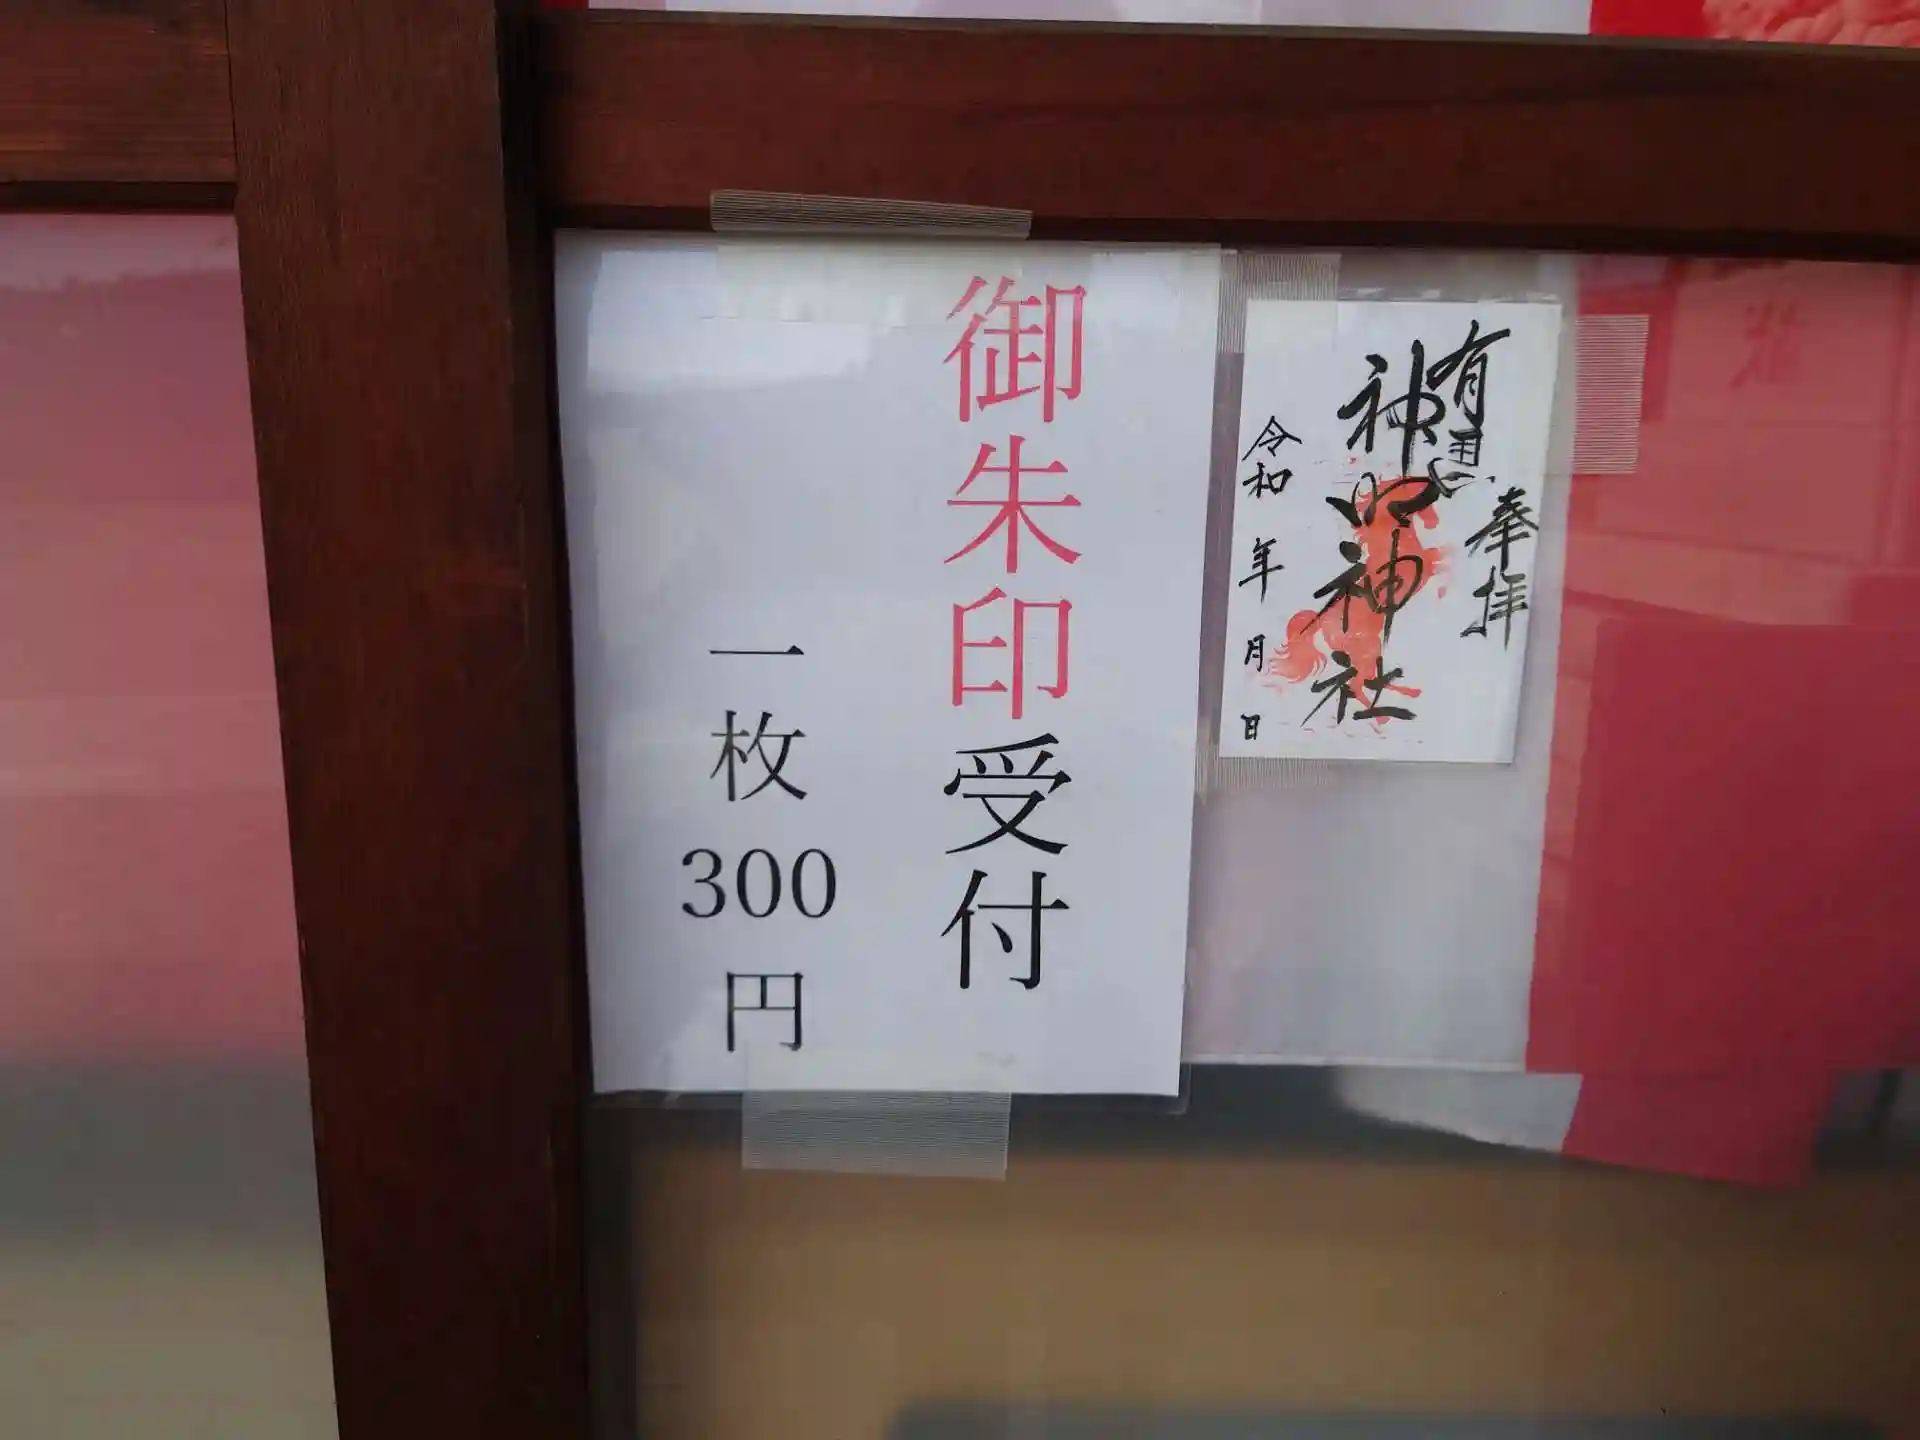 御朱印受付
一枚300円
奉拝
神明神社
令和 年 月 日